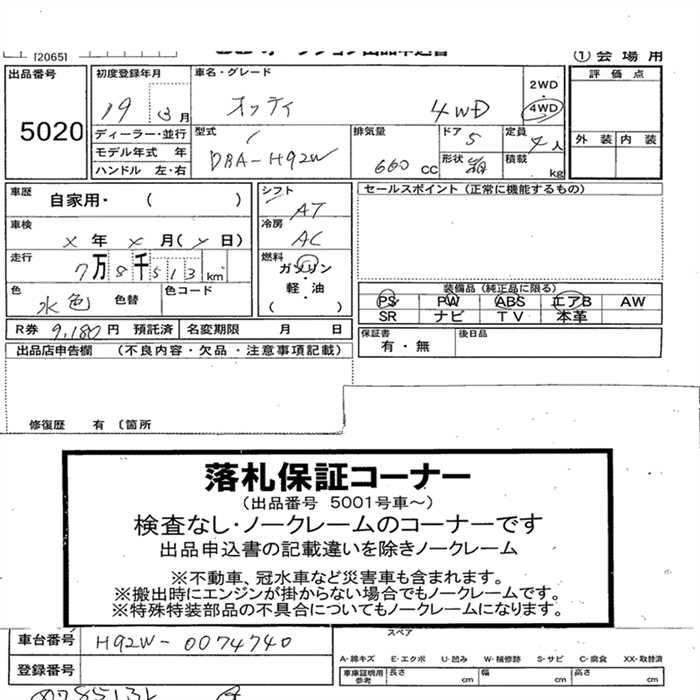 [2065]
① 会場用
出品番号 5020
初度登録年月 19 3月
車名・グレード オッティ 4WD
2WD
4WD
評価点
外装 内装
ディーラー・並行
モデル年式 年
ハンドル 左・右
型式 DBA-H92W
排気量 660 CC
ドア 5
形状 箱
定員 4人
積載 kg
車歴 自家用・( )
シフト AT
セールスポイント (正常に機能するもの)
車検 × 年 × 月(× 日)
冷房 AC
走行 7万8千513 km
燃料 ガソリン
軽・油
( )
色 水色 色替 色コード
装備品 (純正品に限る)
PS PW ABS エアB AW
SR ナビ TV 本革
R券 9,180円 預託済 名変期限 月 日
保証書 有・無
後日品
出品店申告欄 (不良内容・欠品・注意事項記載)
修復歴 有 〔箇所
落札保証コーナー
(出品番号 5001号車〜)
検査なし・ノークレームのコーナーです
出品申込書の記載違いを除きノークレーム
※不動車、冠水車など災害車も含まれます。
※搬出時にエンジンが掛からない場合でもノークレームです。
※特殊特装部品の不具合についてもノークレームになります。
車台番号 H92W-0074740
スペア
登録番号
A-線キズ E-エクボ U-凹み W-補修跡 S-サビ C-腐食 XX-取替済
車庫証明用参考 長さ cm 幅 cm 高さ cm